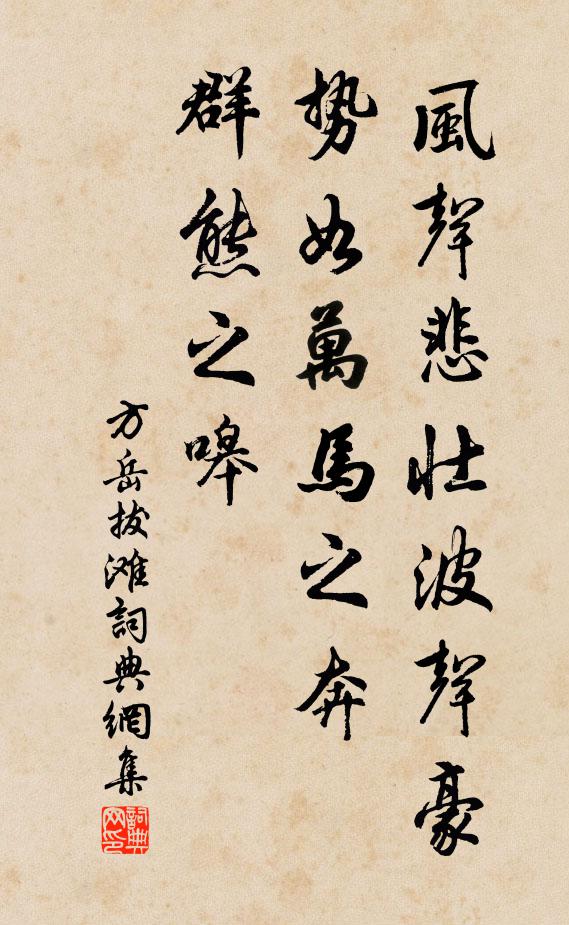 風聲悲壯波聲豪
勢如萬馬之奔
群熊之嗥
方岳拔滩詞典網集
詞典网印